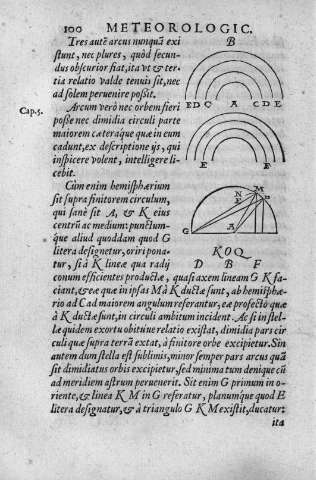 100 METEOROLOGIC.
Tres autē arcus nunquā exi
stunt, nec plures, quòd secun-
dus obscurior fiat, ita vt & ter-
tia relatio valde tenuis sit, nec
ad solem peruenire possit.
Cap. 5. Arcum verò nec orbem fieri
posse nec dimidia circuli parte
maiorem cæteraque quæ in eum
cadunt, ex descriptione ijs, qui
inspicere volent, intelligere li-
cebit.
Cùm enim hemisphærium
sit supra finitorem circulum,
qui sanè sit A, & K eius
centrū ac medium: punctum-
que aliud quoddam quod G
litera designetur, oriri pona-
tur, si à K lineæ quæ radij
conum efficientes productæ, quasi axem lineam G K fa-
ciant, & eæ quæ in ipsas M à K ductæ sunt, ab hemisphæ-
rio ad C ad maiorem angulum referantur, eæ profectò quæ
à K ductæ sunt, in circuli ambitum incident. Ac si in stel-
læ quidem exortu obitúue relatio existat, dimidia pars cir
culi quæ supra terrā extat, à finitore orbe excipietur. Sin
autem dum stella est sublimis, minor semper pars arcus quā
sit dimidiatus orbis excipietur, sed minima tum denique cū
ad meridiem astrum peruenerit. Sit enim G primum in o-
riente, & linea K M in G referatur, planumque quod E
litera designatur, & à triangulo G K M existit, ducatur:
ita
B
E D C A C D E
E E
M
N
E
G A
K O Q
D B F